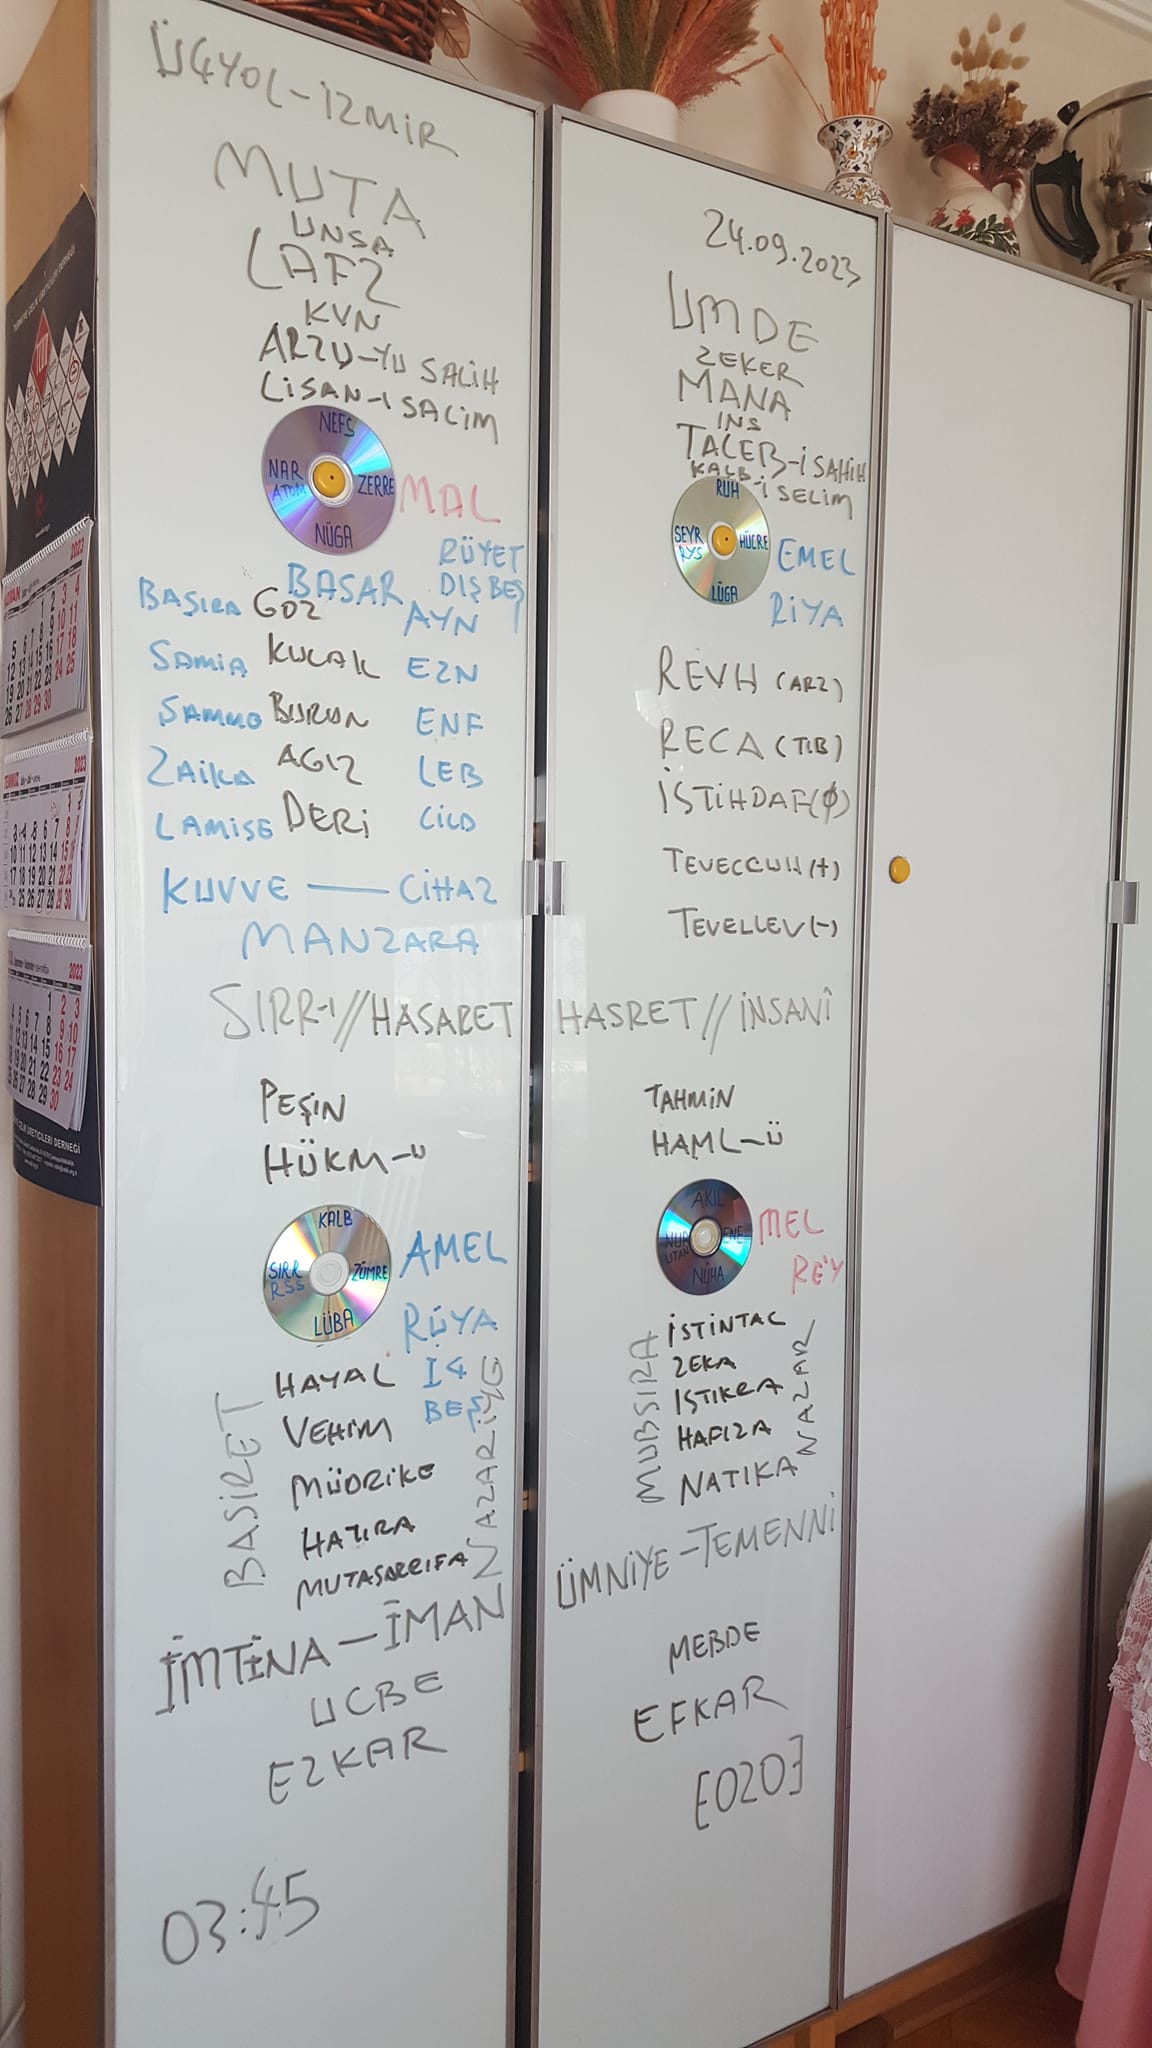 ÜÇYOL-İZMİR
MUTA
UNSA
LAFZ
KVN
ARZU-YU SALİH
LİSAN-I SALİM
NEFS
NAR
ATOM
ZERRE
NÜGA
MAL
RÜYET
DIŞ BEŞ
BASAR
BASIRA GÖZ AYN
SAMİA KULAK EZN
SAMME BURUN ENF
ZAİKA AGIZ LEB
LAMİSE DERİ CİLD
KUVVE — CİHAZ
MANZARA
SIRR-I//HASARET
PEŞİN
HÜKM-Ü
KALB
SIRR
RSS
ZÜMRE
LÜBA
AMEL
RÜYA
İÇ
BEŞ
BASİRET
HAYAL
VEHİM
MÜDRİKE
HATIRA
MUTASARRIFA
NAZARİYE
İMTİNA-İMAN
UCBE
EZKAR
03:45
24.09.2023
UMDE
ZEKER
MANA
INS
TALEB-İ SAHİH
KALB-İ SELİM
RUH
SEYR
RYS
HÜCRE
LÜGA
EMEL
RİYA
REVH (ARZ)
RECA (TIB)
İSTİHDAF(Φ)
TEVECCUH(+)
TEVELLEV(-)
HASRET//İNSANÎ
TAHMİN
HAML-Ü
AKIL
NUR
UTAN
ENE
NÜHA
MEL
RE'Y
MUBSIRA
İSTİNTAC
ZEKA
ISTIKRA
HAFIZA
NATIKA
NAZAR
ÜMNİYE-TEMENNİ
MEBDE
EFKAR
[020]
2023
TEMMUZ
2023
2023